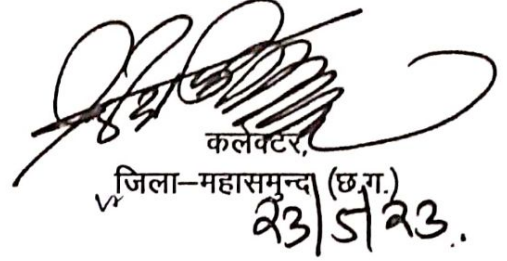 कलेक्टर,
जिला–महासमुन्द (छ.ग.)
२३|५|२३.